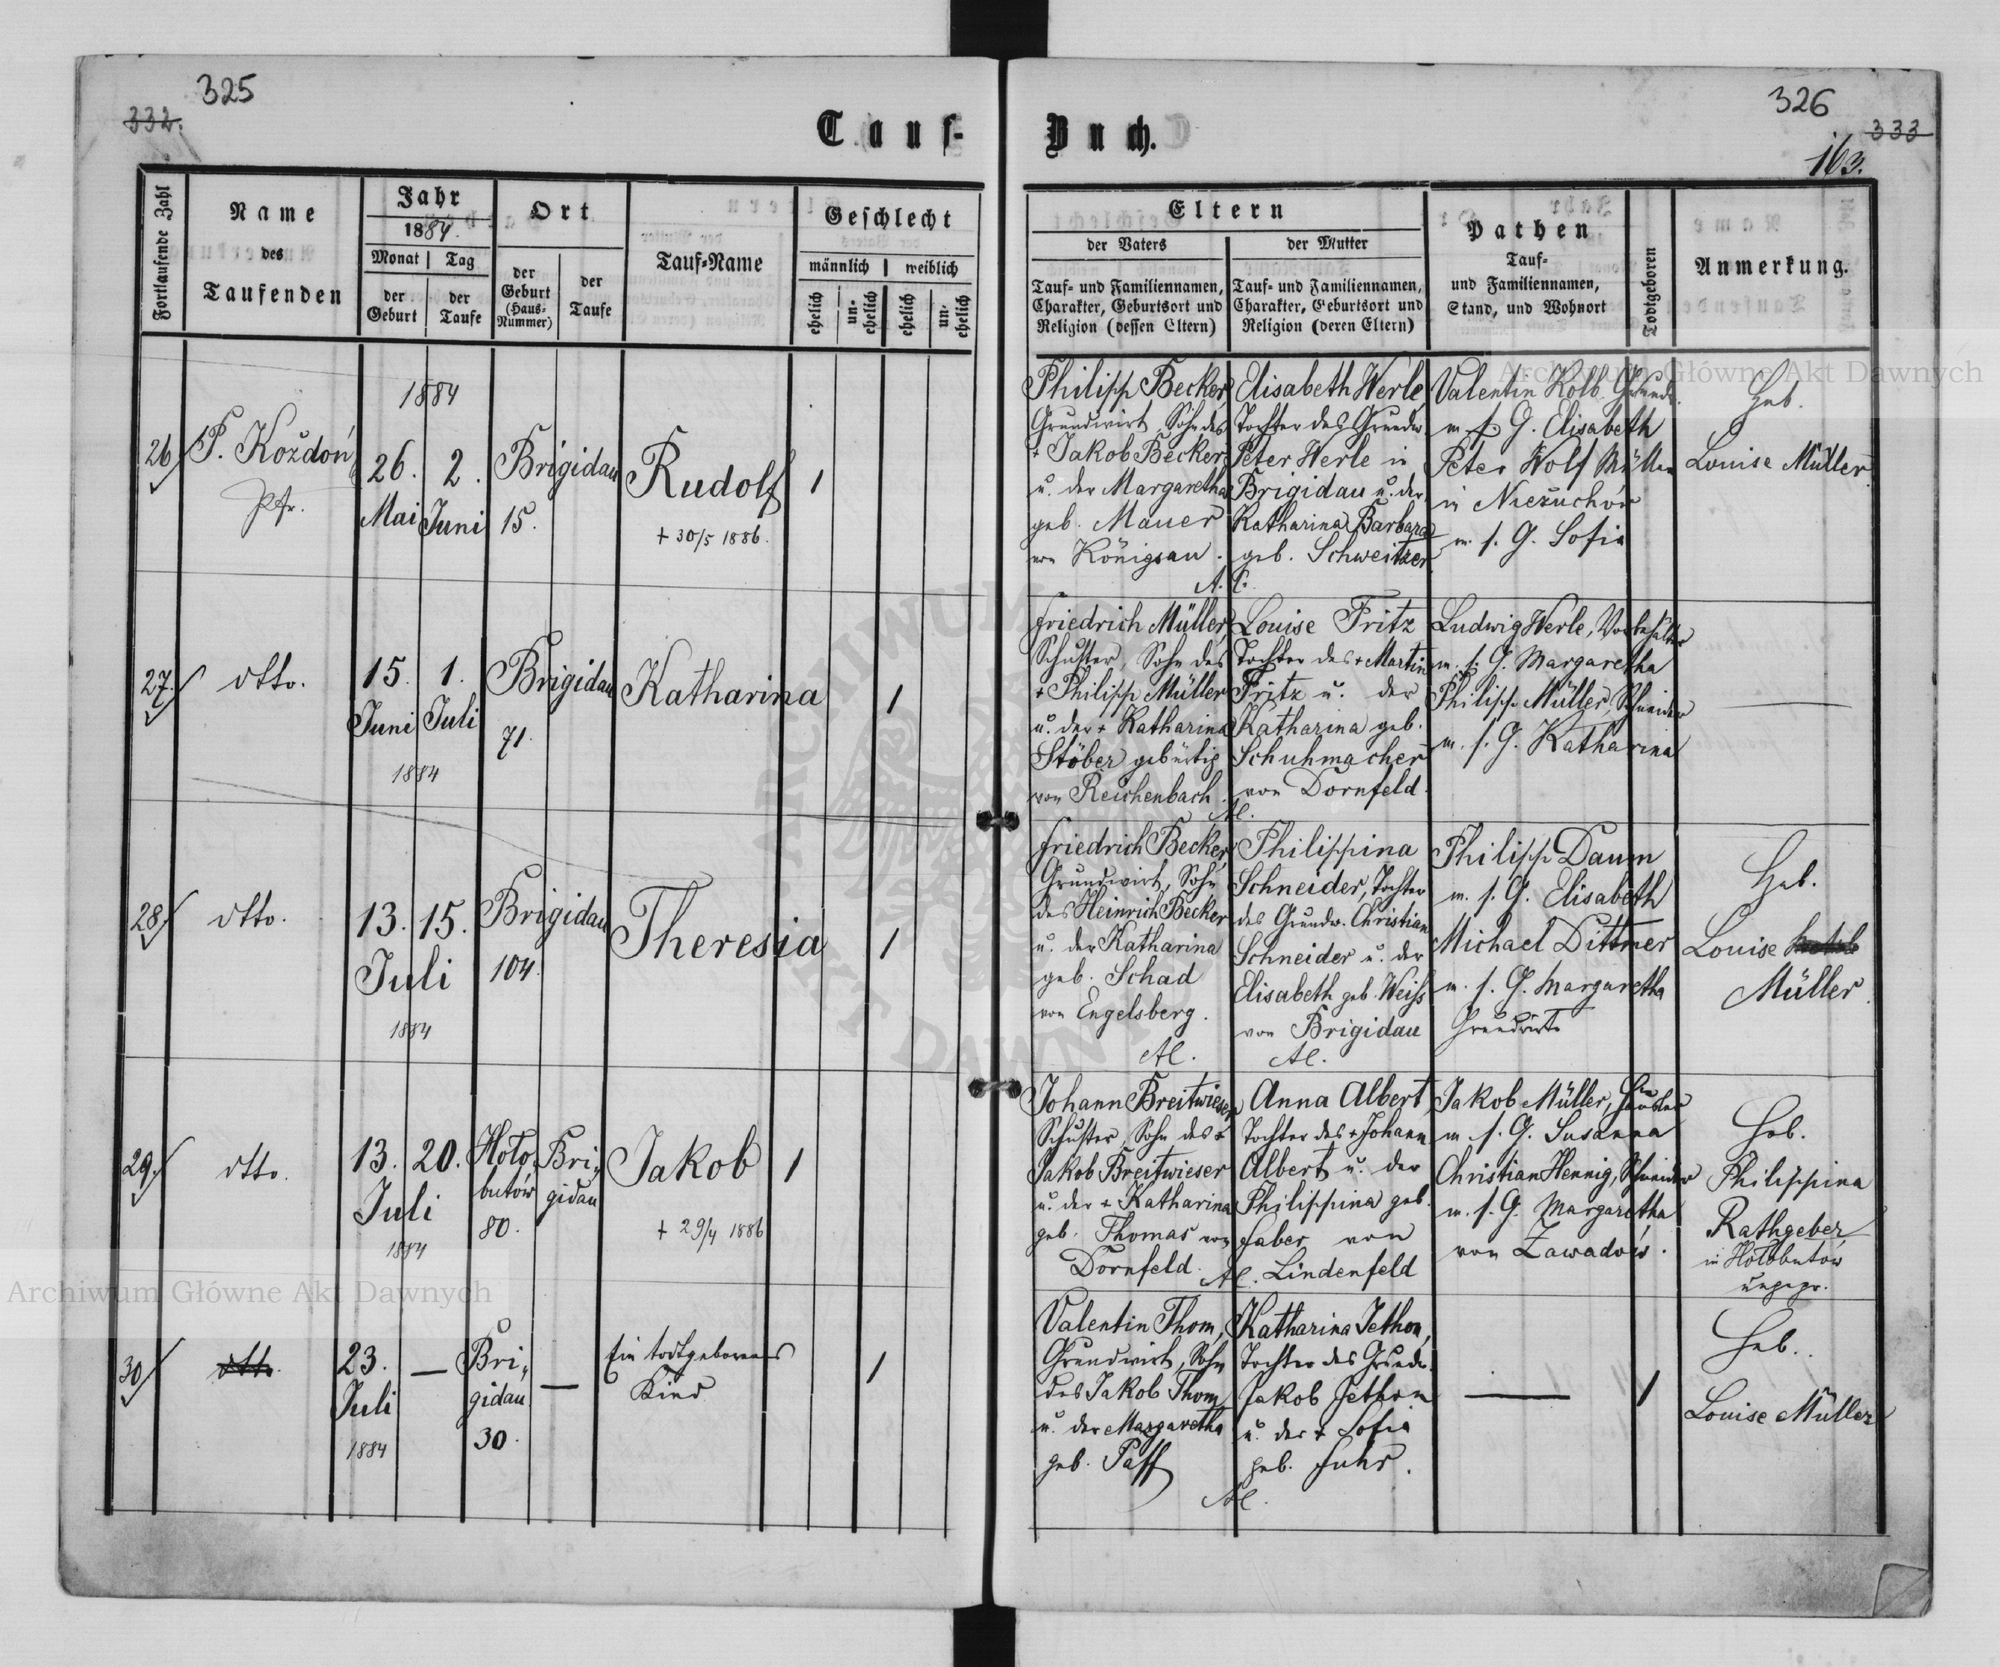 325
332.
Tauf-
Buch.
326
333
163.
Fortlaufende Zahl
Name
des
Taufenden
Jahr
1884.
Monat | Tag
der Geburt
der Taufe
Ort
der Geburt (Haus-Nummer)
der Taufe
Tauf-Name
Geschlecht
männlich | weiblich
ehelich
un-ehelich
ehelich
un-ehelich
Eltern
der Vaters
Tauf- und Familiennamen,
Charakter, Geburtsort und
Religion (dessen Eltern)
der Mutter
Tauf- und Familiennamen,
Charakter, Geburtsort und
Religion (deren Eltern)
Pathen
Tauf-
und Familiennamen,
Stand, und Wohnort
Todtgeboren
Anmerkung.
26
P. Kożdoń
Pfr.
1884
26. Mai
2. Juni
Brigidau
15.
Rudolf
+ 30/5 1886.
1
Philipp Becker
Grundwirt, Sohn des
+ Jakob Becker
u. der Margaretha
geb. Mauer
von Königsau.
Elisabeth Werle,
Tochter des Grundw.
Peter Werle in
Brigidau u. der
Katharina Barbara
geb. Schweitzer
A. C.
Valentin Kolb Grundw.
m. s. G. Elisabeth
Peter Wolf Müller
in Nieżuchów
m. s. G. Sofia
Heb.
Louise Müller
27.
dtto.
15. Juni
1. Juli
1884
Brigidau
71.
Katharina
1
Friedrich Müller
Schuster, Sohn des
+ Philipp Müller
u. der + Katharina
Stöber gebürtig
von Reichenbach.
Louise Fritz
Tochter des + Martin
Fritz u. der
Katharina geb.
Schuhmacher
von Dornfeld.
AC.
Ludwig Werle, Vorbehälter
m. s. G. Margaretha
Philipp Müller, Schneider
m. s. G. Katharina
28.
dtto.
13. 15.
Juli
1884
Brigidau
104.
Theresia
1
Friedrich Becker,
Grundwirt, Sohn
des Heinrich Becker
u. der Katharina
geb. Schad
von Engelsberg.
AC.
Philippina
Schneider, Tochter
des Grundw. Christian
Schneider u. der
Elisabeth geb. Weiss
von Brigidau
AC.
Philipp Daum
m. s. G. Elisabeth
Michael Dittmer
m. s. G. Margaretha
Grundwirte
Heb.
Louise
Müller.
29.
dtto.
13. 20.
Juli
1884
Hoło-
butów
80.
Bri-
gidau
Jakob
+ 29/4 1886
1
Johann Breitwieser,
Schuster, Sohn des +
Jakob Breitwieser
u. der + Katharina
geb. Thomas von
Dornfeld.
Anna Albert,
Tochter des + Johann
Albert u. der
Philippina geb.
Faber von
AC. Lindenfeld
Jakob Müller, Häusler
m. s. G. Susanna
Christian Hennig, Schneider
m. s. G. Margaretha
von Zawadów.
Heb.
Philippina
Rathgeber,
in Hołobutów
ungepr.
30
dtto.
23.
Juli
1884
—
Bri-
gidau
30.
—
Ein todtgeborenes
Kind
1
Valentin Thom,
Grundwirt, Sohn
des Jakob Thom
u. der Margaretha
geb. Paff
Katharina Jethon,
Tochter des Grundw.
Jakob Jethon
u. der + Sofia
geb. Fuhr.
AC.
—
1
Heb.
Louise Müller
Archiwum Główne Akt Dawnych
Archiwum Główne Akt Dawnych
ARCHIWUM
AKT DAWNYCH